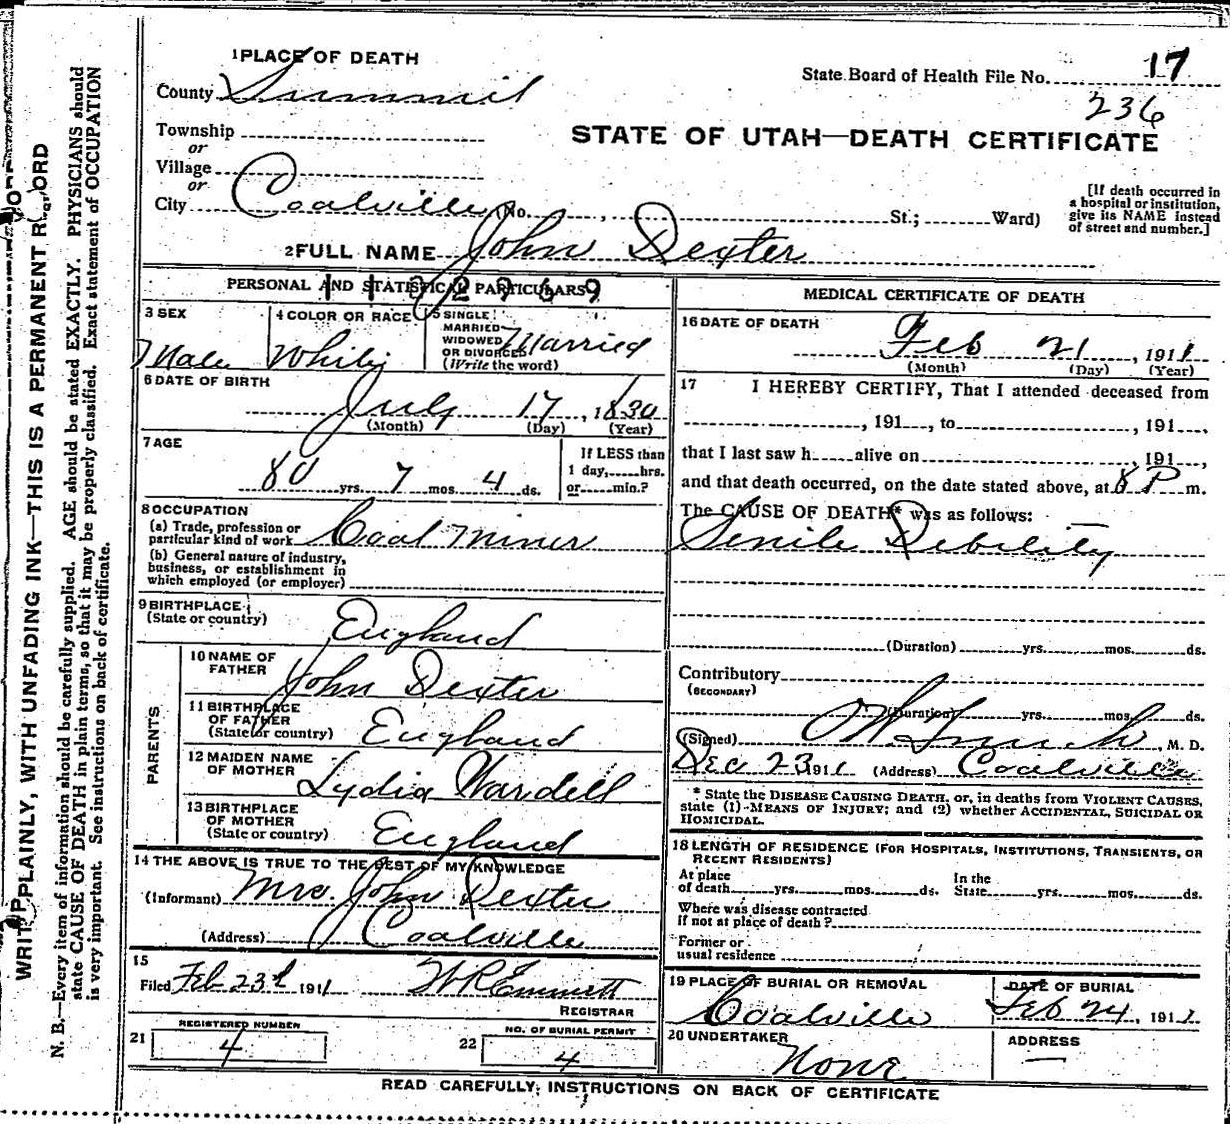 1 PLACE OF DEATH
County Summit
State Board of Health File No. 17
236
STATE OF UTAH—DEATH CERTIFICATE
Township
or
Village
or
City Coalville (No. , St.; Ward)
[If death occurred in
a hospital or institution,
give its NAME instead
of street and number.]
2 FULL NAME John Dexter
PERSONAL AND STATISTICAL PARTICULARS
3 SEX
Male
4 COLOR OR RACE
White
5 SINGLE
MARRIED
WIDOWED
OR DIVORCED
(Write the word)
Married
6 DATE OF BIRTH
July 17, 1830
(Month) (Day) (Year)
7 AGE
80 yrs. 7 mos. 4 ds.
If LESS than
1 day, hrs.
or min.?
8 OCCUPATION
(a) Trade, profession or
particular kind of work Coal Miner
(b) General nature of industry,
business, or establishment in
which employed (or employer)
9 BIRTHPLACE
(State or country)
England
PARENTS
10 NAME OF
FATHER
John Dexter
11 BIRTHPLACE
OF FATHER
(State or country)
England
12 MAIDEN NAME
OF MOTHER
Lydia Wardell
13 BIRTHPLACE
OF MOTHER
(State or country)
England
14 THE ABOVE IS TRUE TO THE BEST OF MY KNOWLEDGE
(Informant) Mrs. John Dexter
(Address) Coalville
15
Filed Feb 23d 1911 W R Emmett
REGISTRAR
21 REGISTERED NUMBER
4
22 NO. OF BURIAL PERMIT
4
MEDICAL CERTIFICATE OF DEATH
16 DATE OF DEATH
Feb 21, 1911
(Month) (Day) (Year)
17 I HEREBY CERTIFY, That I attended deceased from
, 191 , to , 191 ,
that I last saw h alive on , 191 ,
and that death occurred, on the date stated above, at 8 P m.
The CAUSE OF DEATH* was as follows:
Senile Debility
(Duration) yrs. mos. ds.
Contributory
(SECONDARY)
(Duration) yrs. mos. ds.
(Signed) , M. D.
Dec 23 1911 (Address) Coalville
* State the DISEASE CAUSING DEATH, or, in deaths from VIOLENT CAUSES,
state (1) MEANS OF INJURY; and (2) whether ACCIDENTAL, SUICIDAL OR
HOMICIDAL.
18 LENGTH OF RESIDENCE (FOR HOSPITALS, INSTITUTIONS, TRANSIENTS, OR
RECENT RESIDENTS)
At place
of death yrs. mos. ds.
In the
State yrs. mos. ds.
Where was disease contracted
if not at place of death?
Former or
usual residence
19 PLACE OF BURIAL OR REMOVAL
Coalville
DATE OF BURIAL
Feb 24, 1911
20 UNDERTAKER
None
ADDRESS
—
READ CAREFULLY: INSTRUCTIONS ON BACK OF CERTIFICATE
WRITE PLAINLY, WITH UNFADING INK—THIS IS A PERMANENT RECORD
N. B.—Every item of information should be carefully supplied. AGE should be stated EXACTLY. PHYSICIANS should
state CAUSE OF DEATH in plain terms, so that it may be properly classified. Exact statement of OCCUPATION
is very important. See instructions on back of certificate.